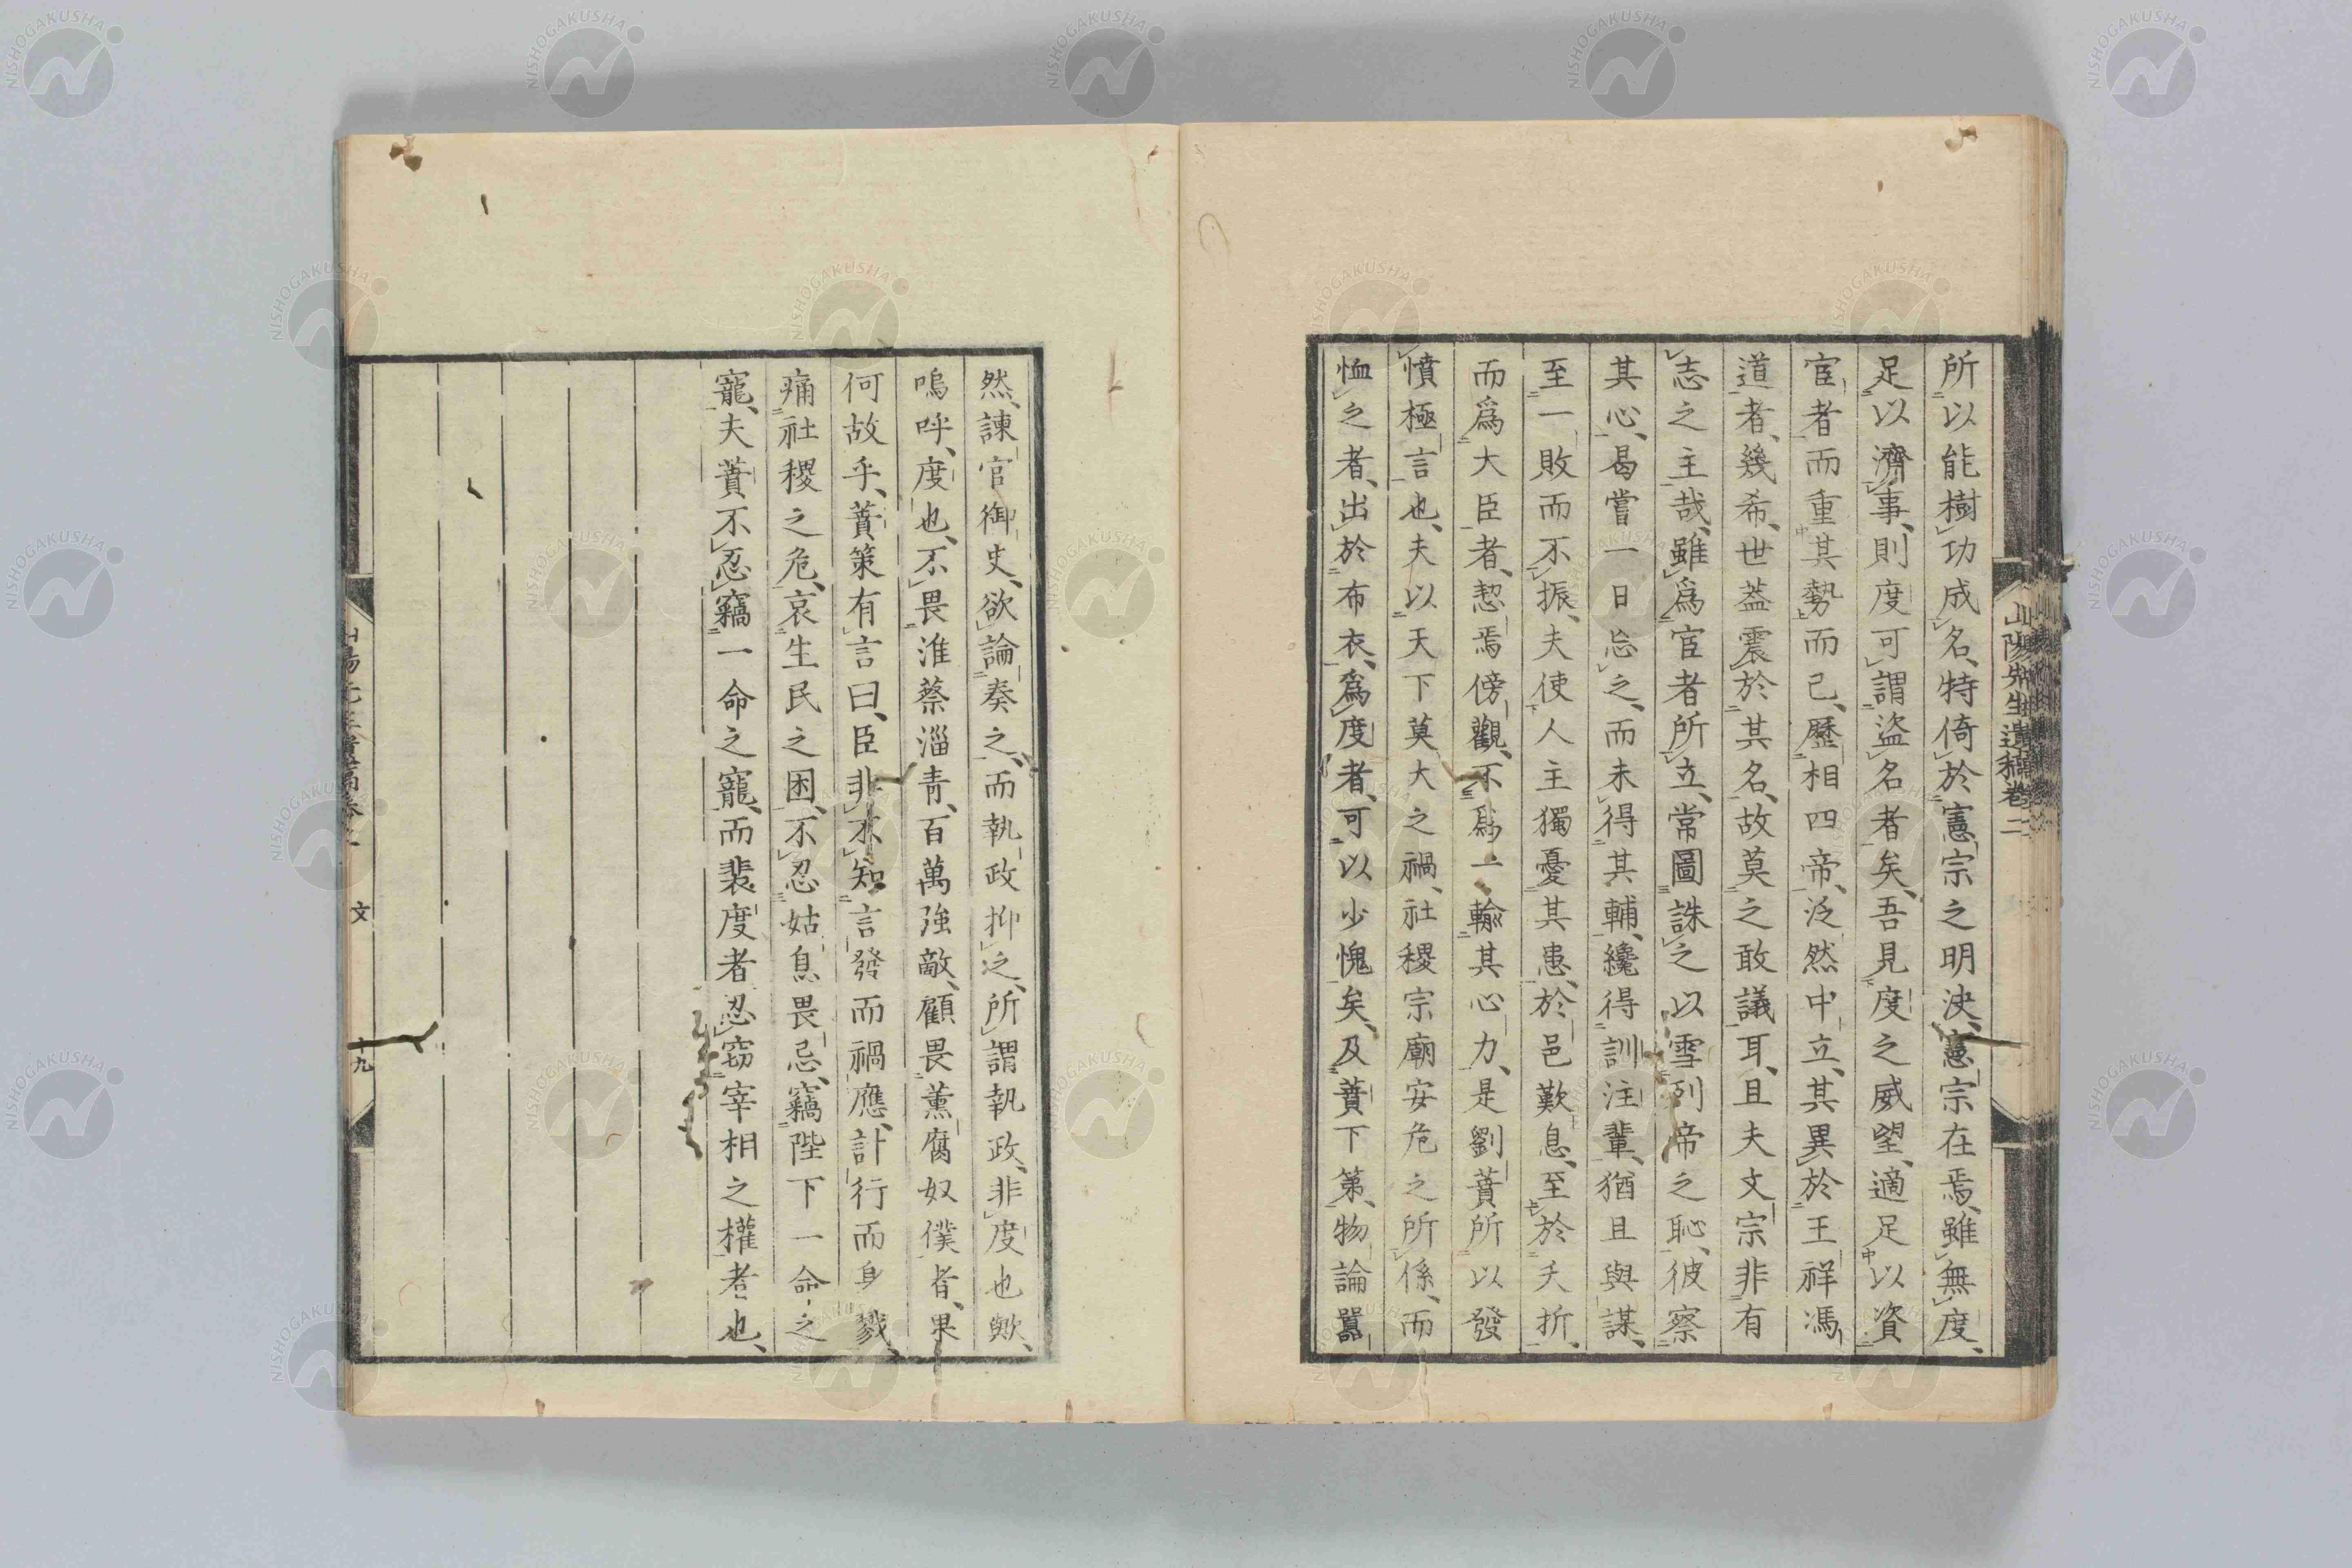 所以能樹功成名、特倚於憲宗之明決、憲宗在焉、雖無度、
足以濟事、則度可謂盜名者矣、吾見度之威望、適足以資
宦者而重其勢而已、歷相四帝、泛然中立、其異於王祥馮
道者、幾希、世蓋震於其名、故莫之敢議耳、且夫文宗非有
志之主哉、雖爲宦者所立、常圖誅之以雪列帝之恥、彼察
其心、曷嘗一日忘之、而未得其輔、纔得訓注輩、猶且與謀、
至一敗而不振、夫使人主獨憂其患、於邑歎息、至於夭折、
而爲大臣者、恝焉傍觀、不爲一輸其心力、是劉蕡所以發
憤極言也、夫以天下莫大之禍、社稷宗廟安危之所係、而
恤之者、出於布衣、爲度者、可以少愧矣、及蕡下第、物論囂
山陽先生遺稿卷二
然、諫官御史、欲論奏之、而執政抑之、所謂執政、非度也歟、
嗚呼、度也、不畏淮蔡淄青、百萬強敵、顧畏薰腐奴僕者、果
何故乎、蕡策有言曰、臣非不知言發而禍應、計行而身戮、
痛社稷之危、哀生民之困、不忍姑息畏忌、竊陛下一命之
寵、夫蕡不忍竊一命之寵、而裴度者忍窃宰相之權者也、
文
十九
NISHOGAKUSHA